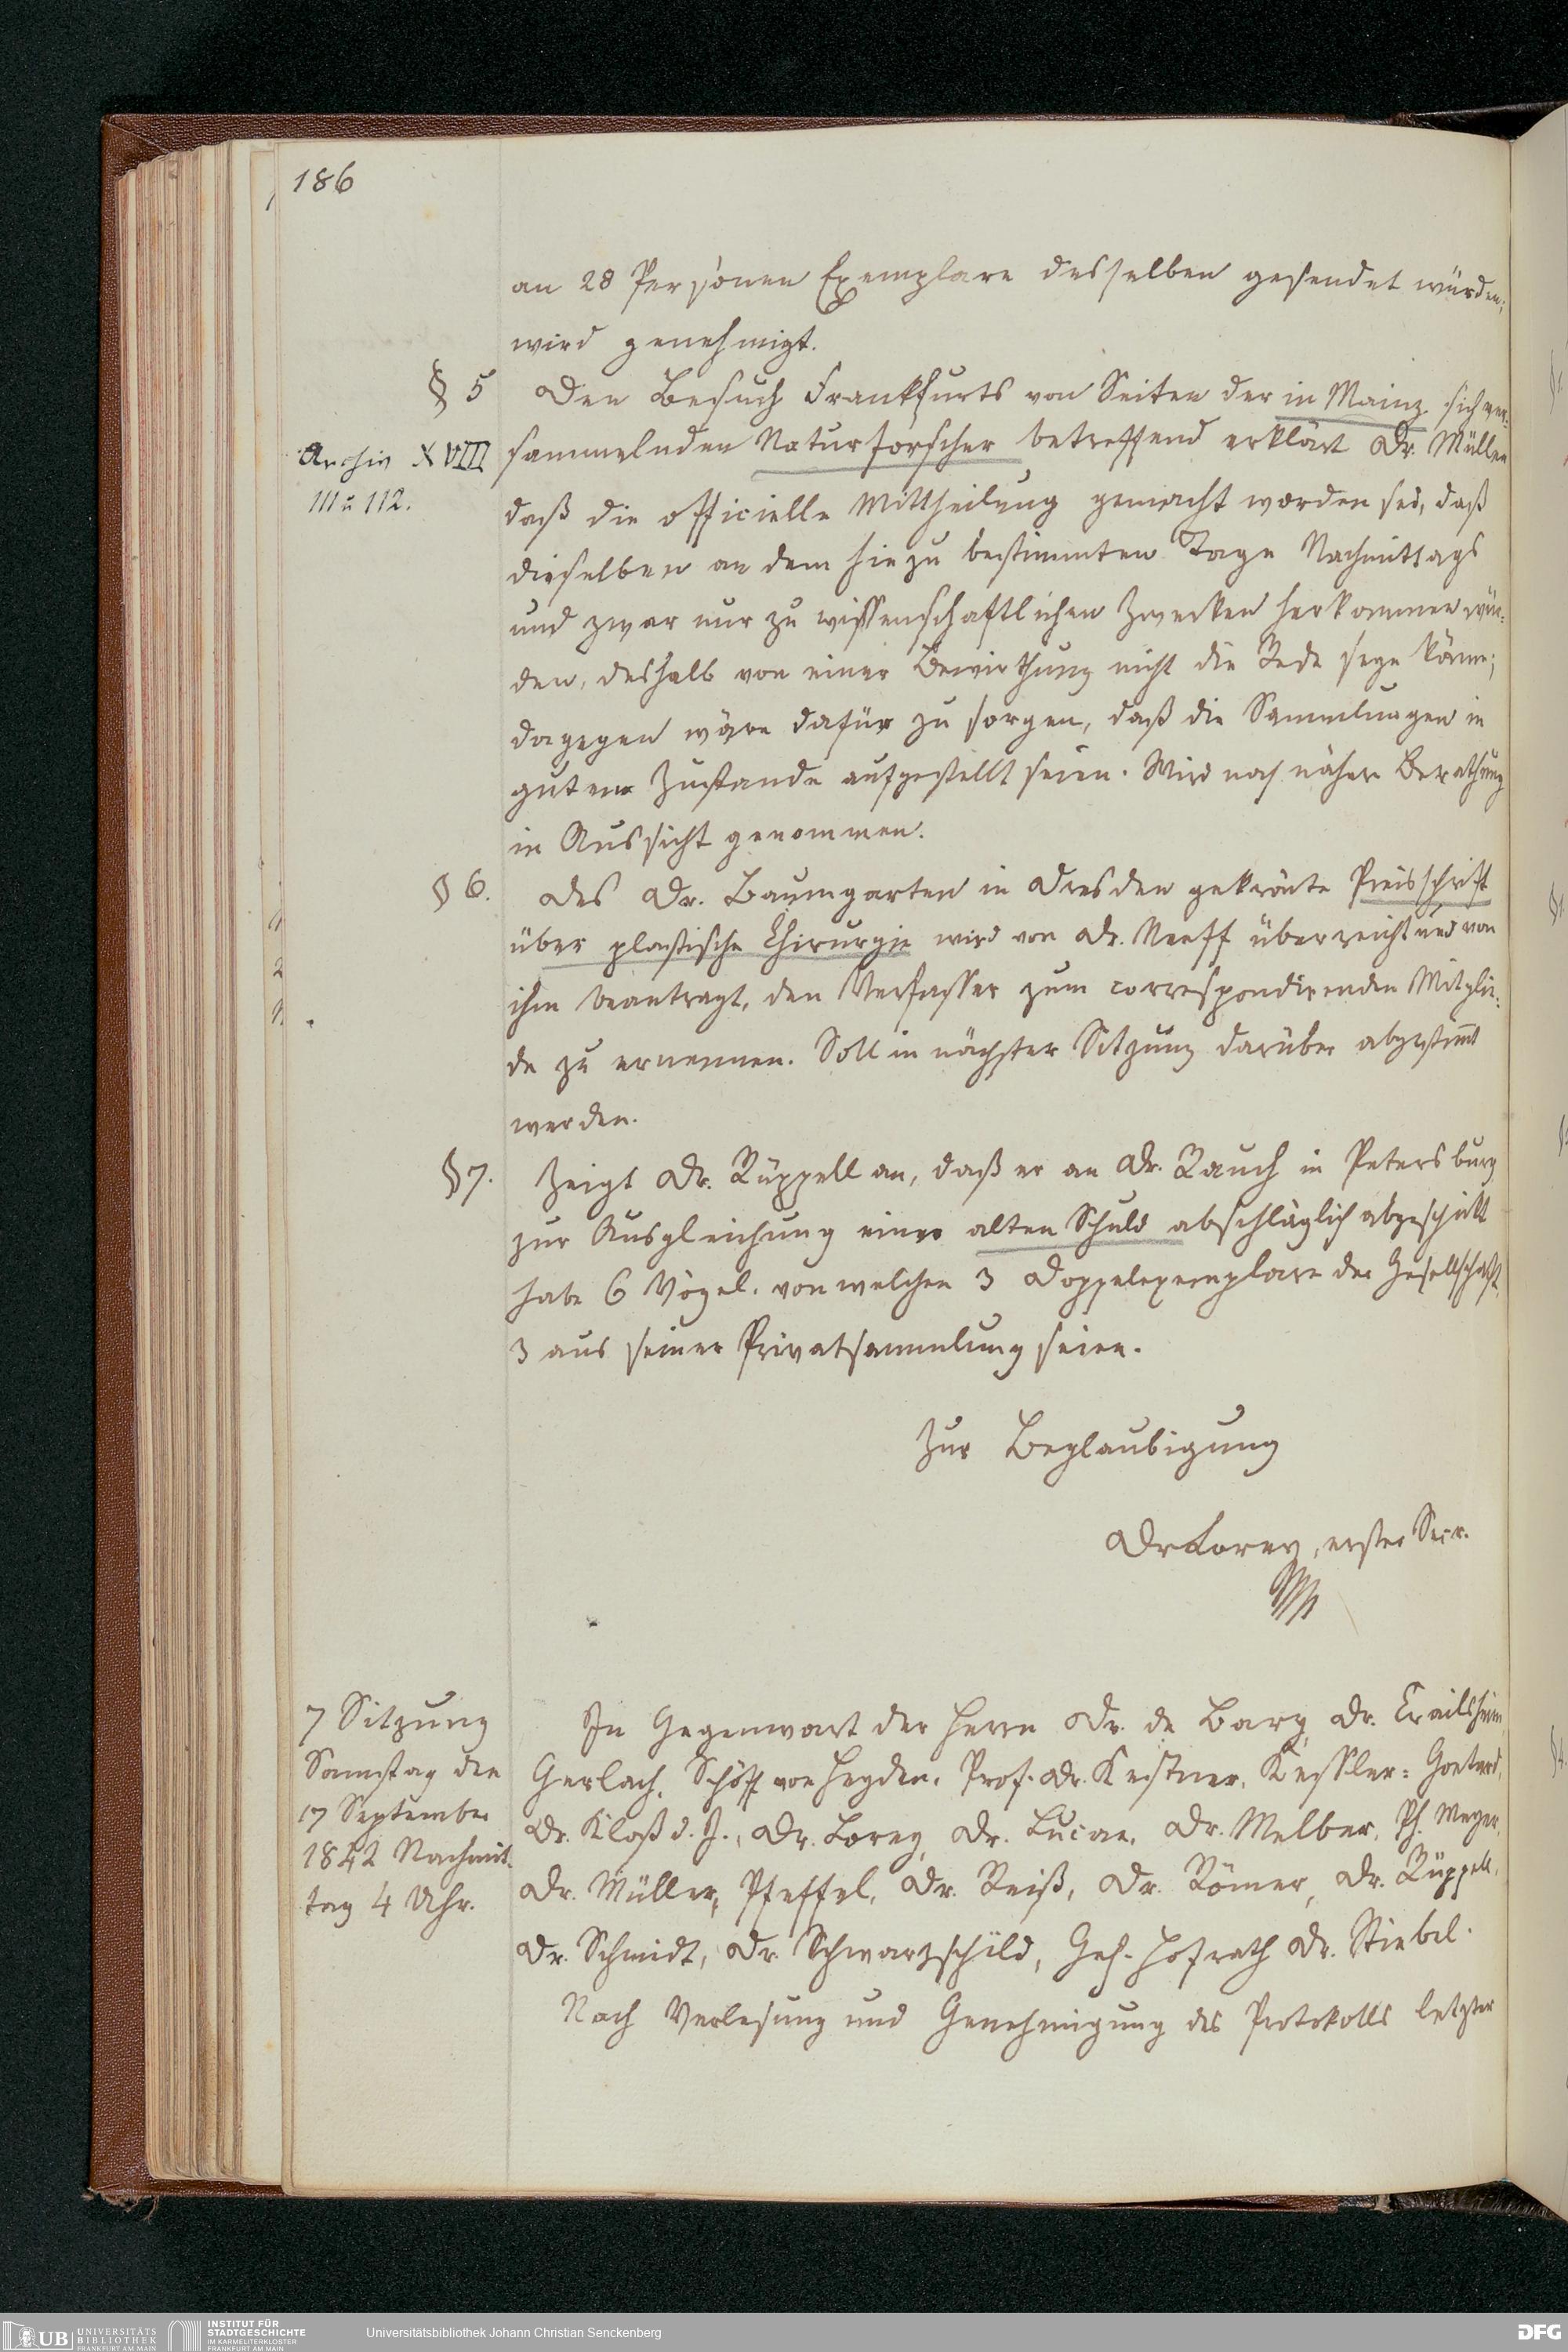 186
an 28 Personen Exemplare desselben gesendet würden;
wird genehmigt.
§ 5 Den Besuch Frankfurts von Seiten der in Mainz sich ver-
Archiv XVIII
111 u 112.
sammelnden Naturforscher betreffend erklärt Dr. Müller
daß die officielle Mittheilung gemacht worden sei, daß
dieselben an dem hiezu bestimmten Tage Nachmittags
und zwar nur zu wissenschaftlichen Zwecken herkommen wür-
den, deshalb von einer Bewirthung nicht die Rede seyn könne;
dagegen wäre dafür zu sorgen, daß die Sammlungen in
gutem Zustande aufgestellt seien. Wird noch nähere Berathung
in Aussicht genommen.
§ 6. Des Dr. Baumgarten in Dresden gekrönte Preisschrift
über plastische Chirurgie wird von Dr. Neeff überreicht und von
ihm beantragt, den Verfasser zum correspondirenden Mitglie-
de zu ernennen. Soll in nächster Sitzung darüber abgestimt
werden.
§ 7. Zeigt Dr. Rüppell an, daß er an Dr. Rauch in Petersburg
zur Ausgleichung einer alten Schuld abschläglich abgeschickt
habe 6 Vögel, von welchen 3 Doppelexemplare der Gesellschaft,
3 aus seiner Privatsammlung seien.
Zur Beglaubigung
Dr Lorey, erster Secr.
7 Sitzung
Samstag den
17 September
1842 Nachmit-
tag 4 Uhr.
In Gegenwart der Herrn Dr. de Bary, Dr. Crailsheim,
Gerlach, Schöff von Heyden, Prof. Dr. Kestner, Kessler-Gontard,
Dr. Kloß d. J., Dr. Lorey, Dr. Lucae, Dr. Melber, Ph. Meyer,
Dr. Müller, Pfeffel, Dr. Reiß, Dr. Römer, Dr. Rüppell,
Dr. Schmidt, Dr. Schwarzschild, Geh. Hofrath Dr. Stiebel.
Nach Verlesung und Genehmigung des Protokolls letzter
UB UNIVERSITÄTS
BIBLIOTHEK
FRANKFURT AM MAIN
INSTITUT FÜR
STADTGESCHICHTE
IM KARMELITERKLOSTER
FRANKFURT AM MAIN
Universitätsbibliothek Johann Christian Senckenberg
DFG